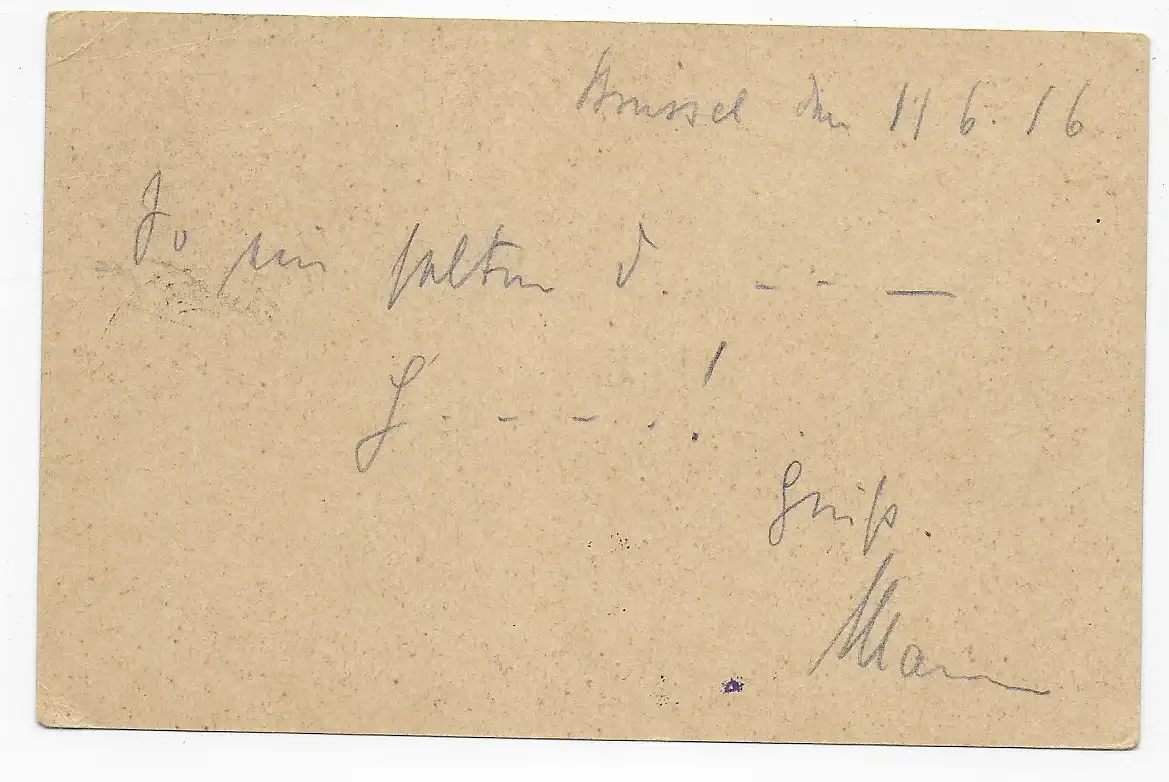 Brüssel den 11 6. 16
So ein selten d. - - —
G - - - . !
Gruß.